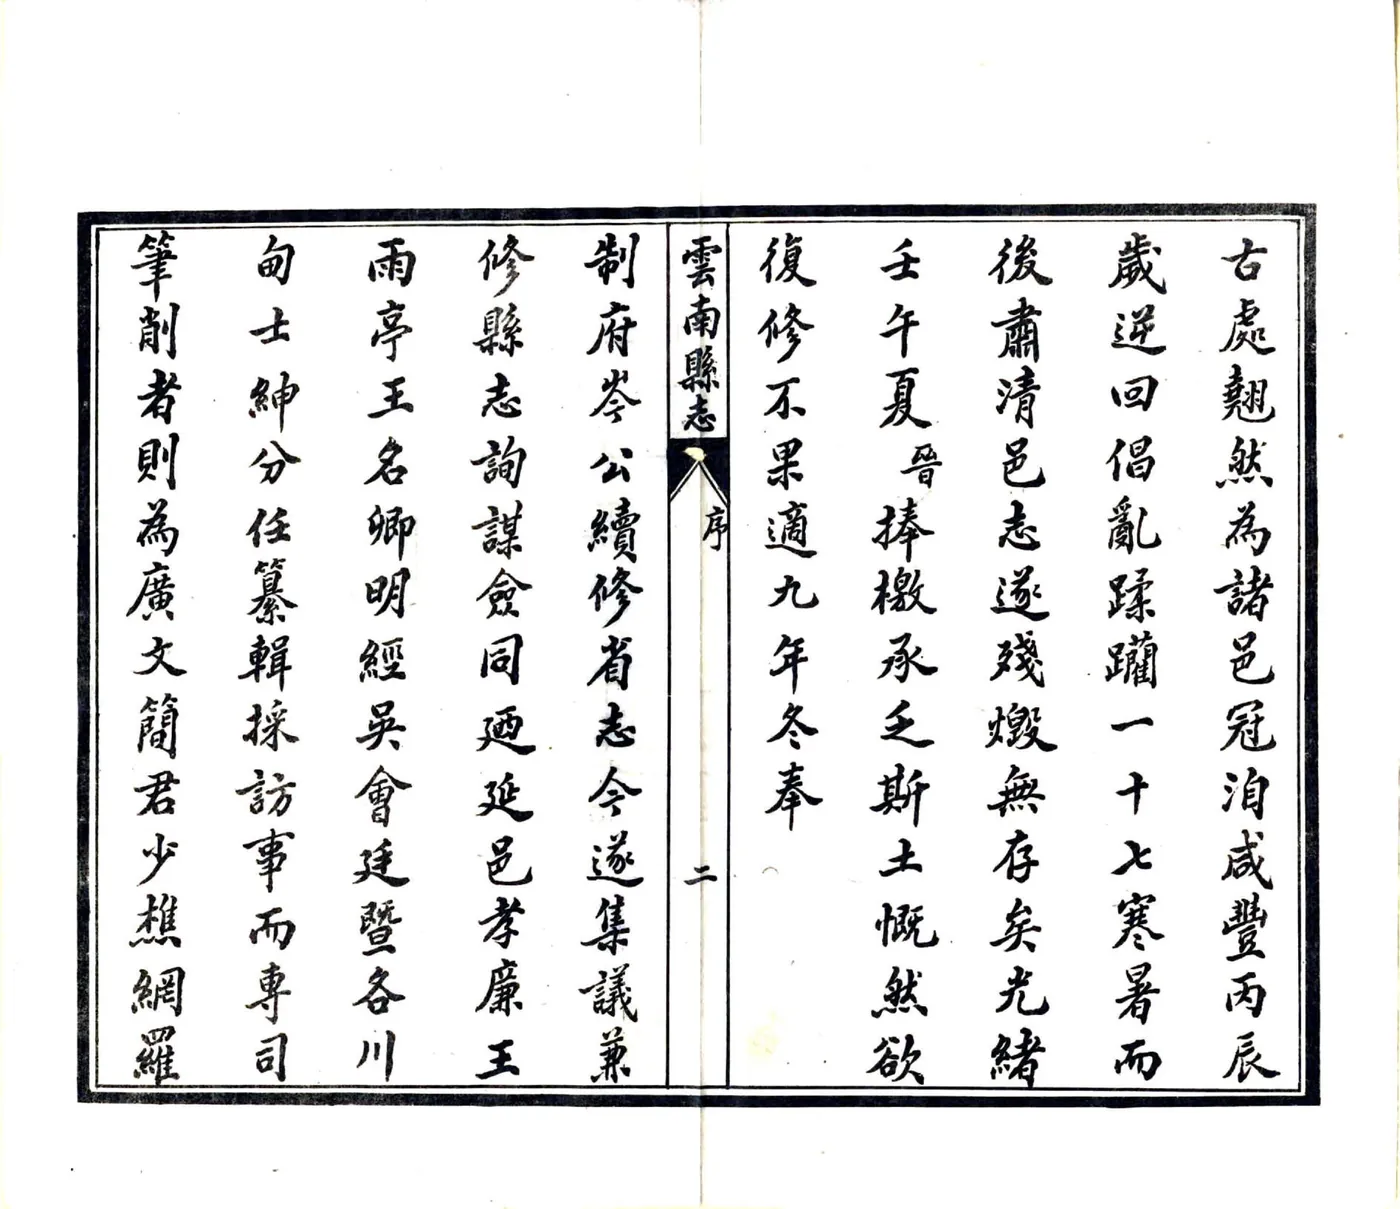 古處翹然為諸邑冠洎咸豐丙辰
歲逆回倡亂蹂躪一十七寒暑而
後肅清邑志遂殘燬無存矣光緒
壬午夏晉捧檄承乏斯土慨然欲
復修不果適九年冬奉
雲南縣志
序
二
制府岑公續修省志令遂集議兼
修縣志詢謀僉同廼延邑孝廉王
雨亭王名卿明經吳會廷暨各川
甸士紳分任纂輯採訪事而專司
筆削者則為廣文簡君少樵網羅